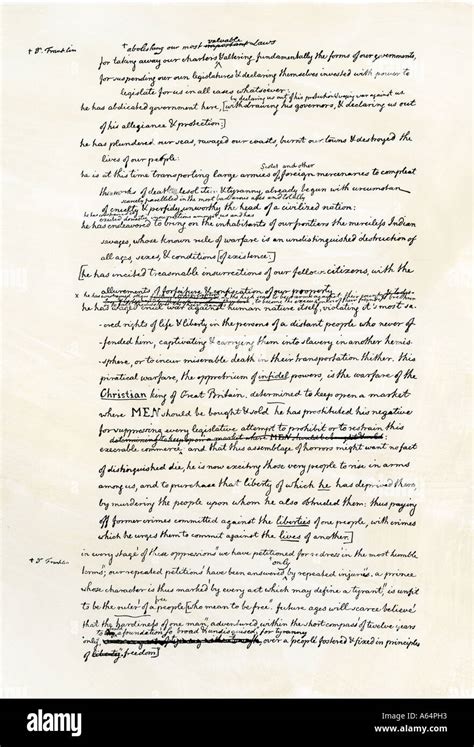 + Dr. Franklin
+ abolishing our most valuable important Laws
for taking away our charters & altering fundamentally the forms of our governments,
for suspending our own legislatures & declaring themselves invested with power to
legislate for us in all cases whatsoever:
by declaring us out of his protection & waging war against us
he has abdicated government here, [withdrawing his governors, & declaring us out
of his allegiance & protection:]
he has plundered our seas, ravaged our coasts, burnt our towns & destroyed the
lives of our people:
Scotch and other
he is at this time transporting large armies of foreign mercenaries to compleat
the works of death desolation & tyranny, already begun with circumstances
scarcely paralleled in the most barbarous ages and totally
of cruelty & perfidy unworthy the head of a civilized nation:
he has excited domestic insurrections amongst us and has
he has endeavored to bring on the inhabitants of our frontiers the merciless Indian
savages, whose known rule of warfare is an undistinguished destruction of
all ages, sexes, & conditions [of existence:]
[he has incited treasonable insurrections of our fellow citizens, with the
allurements of forfeiture & confiscation of our property
x he has
he has waged cruel war against human nature itself, violating it's most sa-
-cred rights of life & liberty in the persons of a distant people who never of-
fended him, captivating & carrying them into slavery in another hemis-
-sphere, or to incur miserable death in their transportation thither. this
piratical warfare, the opprobrium of infidel powers, is the warfare of the
Christian king of Great Britain. determined to keep open a market
where MEN should be bought & sold he has prostituted his negative
for suppressing every legislative attempt to prohibit or to restrain this
determining to keep open a market where MEN should be bought & sold:
execrable commerce: and that this assemblage of horrors might want no fact
of distinguished die, he is now exciting those very people to rise in arms
among us, and to purchase that liberty of which he has deprived them,
by murdering the people upon whom he also obtruded them: thus paying
off former crimes committed against the liberties of one people, with crimes
which he urges them to commit against the lives of another.]
in every stage of these oppressions we have petitioned for redress in the most humble
+ Dr. Frankl.
only
terms; our repeated petitions have been answered by repeated injuries. a prince
whose character is thus marked by every act which may define a tyrant, is unfit
free
to be the ruler of a people [who mean to be free. future ages will scarce believe
that the hardiness of one man, adventured within the short compass of twelve years
to a foundation so broad & undisguised, for tyranny
only, over a people fostered & fixed in principles
of liberty freedom]
alamy
Image ID: A64PH3
www.alamy.com